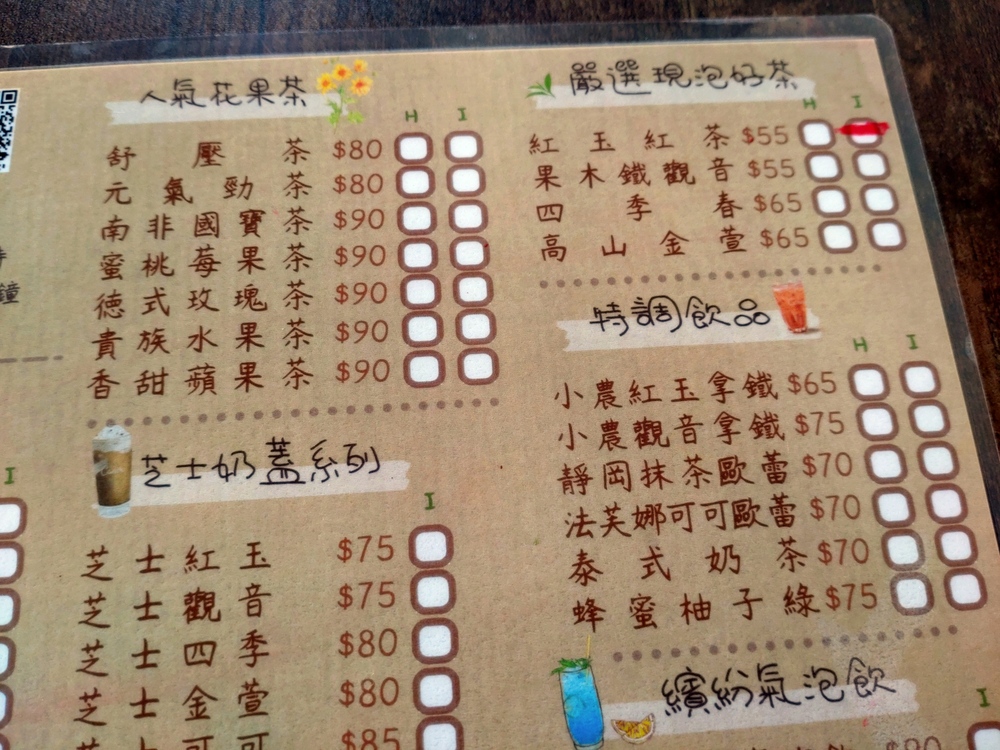 人氣花果茶
H I
舒壓茶 $80
元氣勁茶 $80
南非國寶茶 $90
蜜桃莓果茶 $90
德式玫瑰茶 $90
貴族水果茶 $90
香甜蘋果茶 $90
芝士奶蓋系列
I
芝士紅玉 $75
芝士觀音 $75
芝士四季 $80
芝士金萱 $80
芝士可可 $85
嚴選現泡好茶
H I
紅玉紅茶 $55
果木鐵觀音 $55
四季春 $65
高山金萱 $65
特調飲品
H I
小農紅玉拿鐵 $65
小農觀音拿鐵 $75
靜岡抹茶歐蕾 $70
法芙娜可可歐蕾 $70
泰式奶茶 $70
蜂蜜柚子綠 $75
繽紛氣泡飲
I
鐘
I